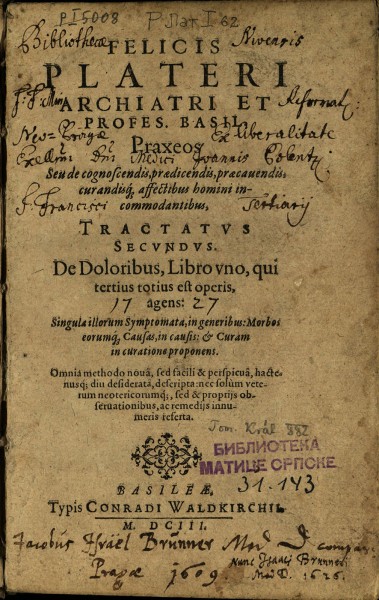 P I 5008
Р Лат I 62
Bibliothecæ Nivenris
FELICIS
PLATERI
ARCHIATRI ET
PROFES. BASIL.
Reformat:
Neo-Pragæ Ex liberalitate
Praxeos
Medici Joannis
Seu de cognoscendis, prædicendis, præcavendis,
curandisq́; affectibus homini in-
commodantibus,
S. Francisci Tertiarij
TRACTATVS
SECVNDVS.
De Doloribus, Libro vno, qui
tertius totius est operis,
17 agens: 27
Singula illorum Symptomata, in generibus: Morbos
eorumq́;, Causas, in causis: & Curam
in curatione proponens.
Omnia methodo novâ, sed facili & perspicuâ, hacte-
nusq́; diu desideratâ, descripta: nec solùm vete-
rum neotericorumq́;, sed & proprijs ob-
seruationibus, ac remedijs innu-
meris referta.
Tom. Král
БИБЛИОТЕКА
МАТИЦЕ СРПСКЕ
31.143
BASILEÆ,
Typis CONRADI WALDKIRCHII.
M. DCIII.
Jacobus Israël Brünner Med D compar.
Pragæ 1609.
Nunc Isaaci Brunneri
Med D. 1626.